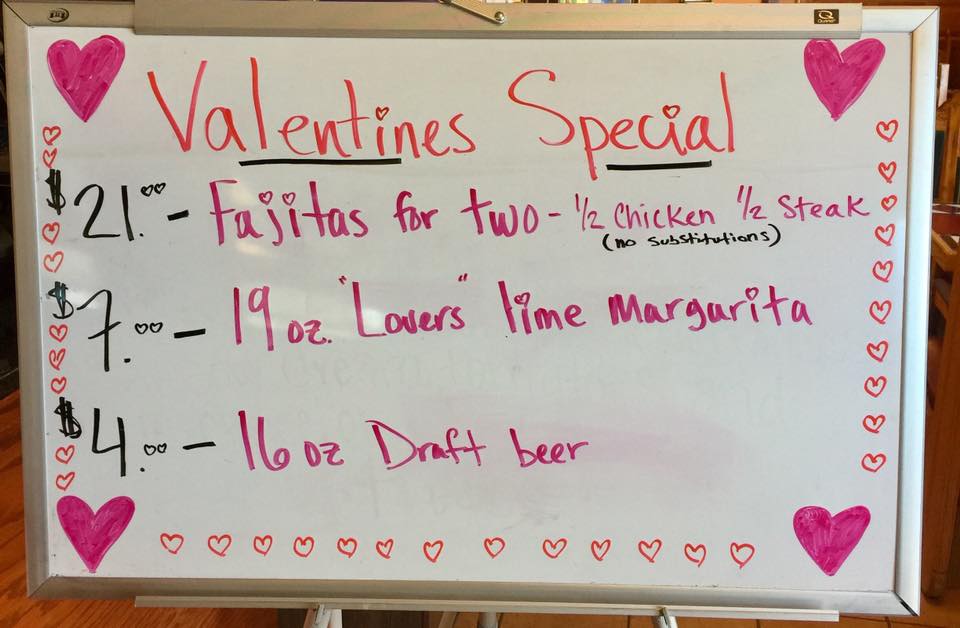 Valentines Special
$21.00 - Fajitas for two - 1/2 Chicken 1/2 Steak
(no substitutions)
$7.00 - 19 oz. "Lovers" lime Margarita
$4.00 - 16 oz Draft beer